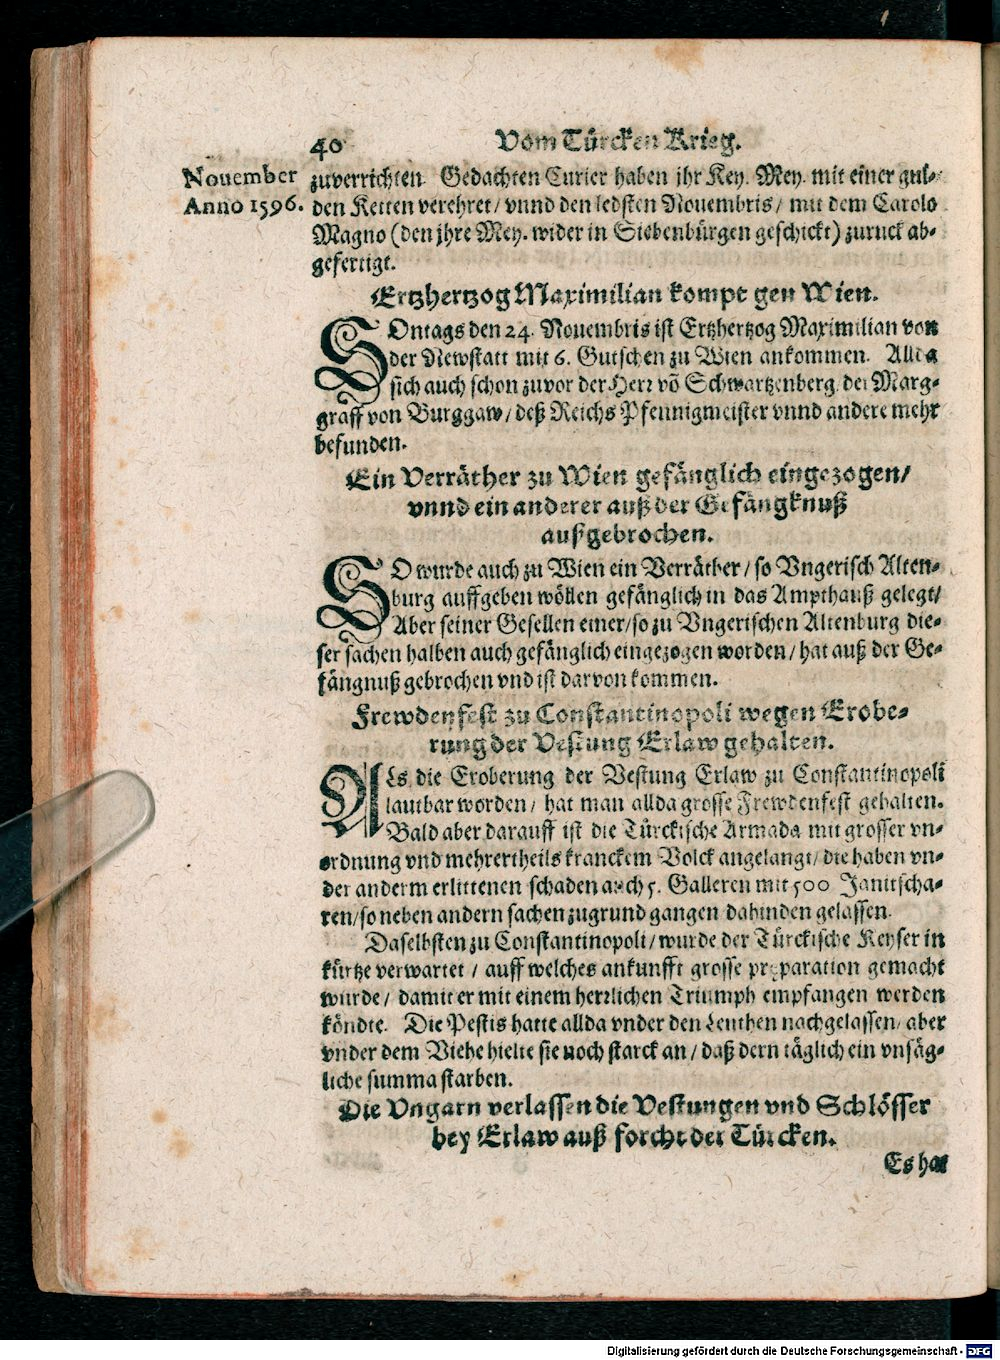 40 Vom Türcken Krieg.
Nouember
Anno 1596.
zuverrichten. Gedachten Curier haben jhr Key. Mey. mit einer gul-
den Ketten verehret / vnnd den ledsten Nouembris / mit dem Carolo
Magno (den jhre Mey. wider in Siebenbürgen geschickt) zuruck ab-
gefertigt.
Ertzhertzog Maximilian kompt gen Wien.
SOntags den 24. Nouembris ist Ertzhertzog Maximilian von
der Newstatt mit 6. Gutschen zu Wien ankommen. Allda
sich auch schon zuvor der Herr võ Schwartzenberg, der Marg-
graff von Burggaw / deß Reichs Pfennigmeister vnnd andere mehr
befunden.
Ein Verräther zu Wien gefänglich eingezogen /
vnnd ein anderer auß der Gefängknuß
außgebrochen.
SO wurde auch zu Wien ein Verräther / so Vngerisch Alten-
burg auffgeben wöllen gefänglich in das Ampthauß gelegt /
Aber seiner Gesellen einer / so zu Vngerischen Altenburg die-
ser sachen halben auch gefänglich eingezogen worden / hat auß der Ge-
fängnuß gebrochen vnd ist darvon kommen.
Frewdenfest zu Constantinopoli wegen Erobe-
rung der Vestung Erlaw gehalten.
ALs die Eroberung der Vestung Erlaw zu Constantinopoli
lautbar worden / hat man allda grosse Frewdenfest gehalten.
Bald aber darauff ist die Türckische Armada mit grosser vn-
ordnung vnd mehrertheils kranckem Volck angelangt / die haben vn-
der anderm erlittenen schaden auch 5. Galleren mit 500 Janitscha-
ren / so neben andern sachen zugrund gangen dahinden gelassen.
Daselbsten zu Constantinopoli / wurde der Türckische Keyser in
kürtze verwartet / auff welches ankunfft grosse præparation gemacht
wurde / damit er mit einem herrlichen Triumph empfangen werden
köndte. Die Pestis hatte allda vnder den Leuthen nachgelassen / aber
vnder dem Viehe hielte sie noch starck an / daß dern täglich ein vnsäg-
liche summa starben.
Die Vngarn verlassen die Vestungen vnd Schlösser
bey Erlaw auß forcht der Türcken.
Es hat
Digitalisierung gefördert durch die Deutsche Forschungsgemeinschaft - DFG